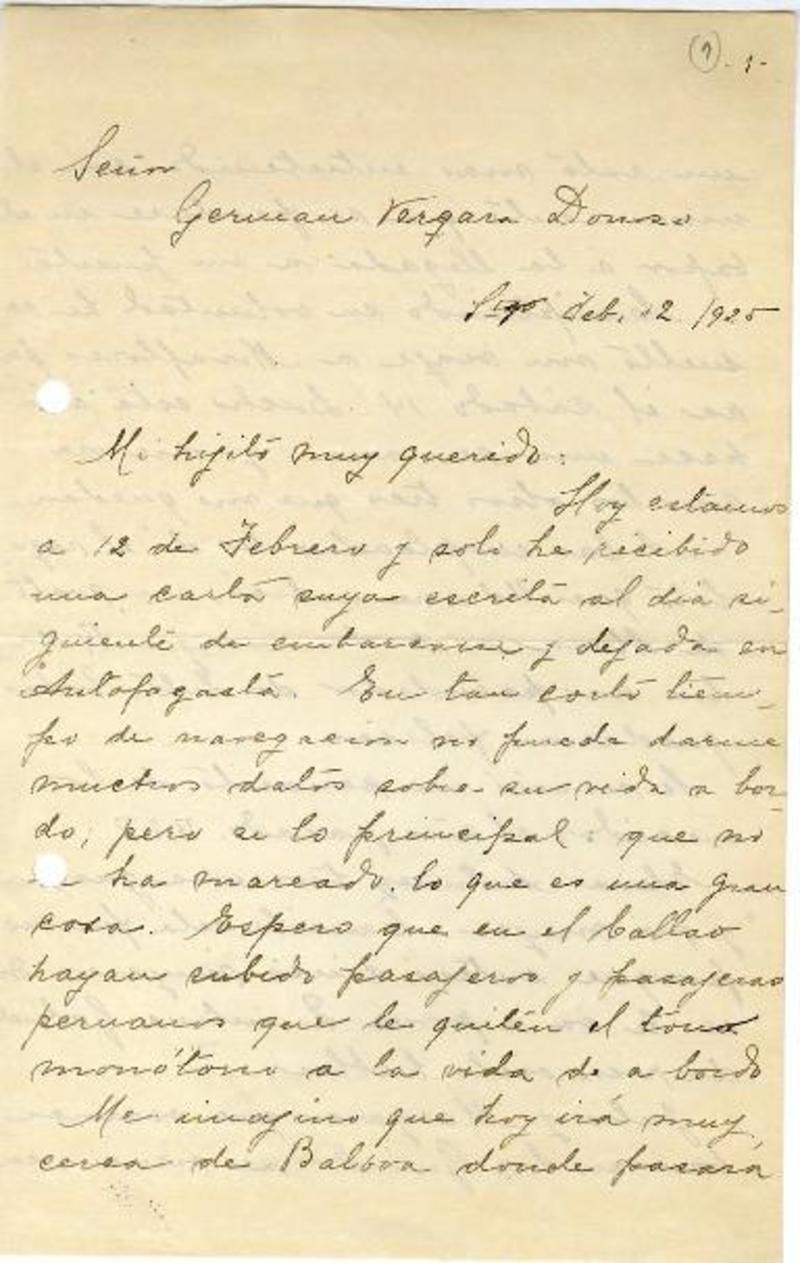 (1) - 1 -
Señor
German Vergara Donoso
Stgo Feb. 12 /925
Mi hijito muy querido:
Hoy estamos
a 12 de Febrero y solo he recibido
una carta suya escrita al dia si-
guiente de embarcarse y dejada en
Antofagasta. En tan corto tiem-
po de navegacion no puede darme
muchos datos sobre su vida a bor-
do, pero si lo principal: que no
ha mareado, lo que es una gran
cosa. Espero que en el Callao
hayan subido pasajeros y pasajeras
peruanos que le quiten el tono
monótono a la vida de a bordo
Me imagino que hoy irá muy
cerca de Balboa donde pasará